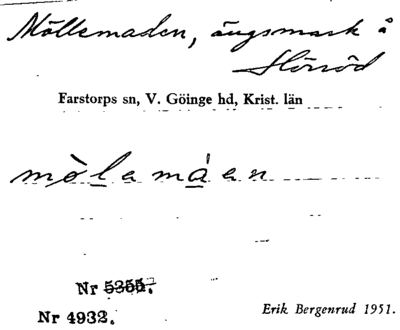 Möllemaden, ängsmark å
Farstorps sn, V. Göinge hd, Krist. län
mòlamáen
Nr 5355.
Nr 4932.
Erik Bergenrud 1951.